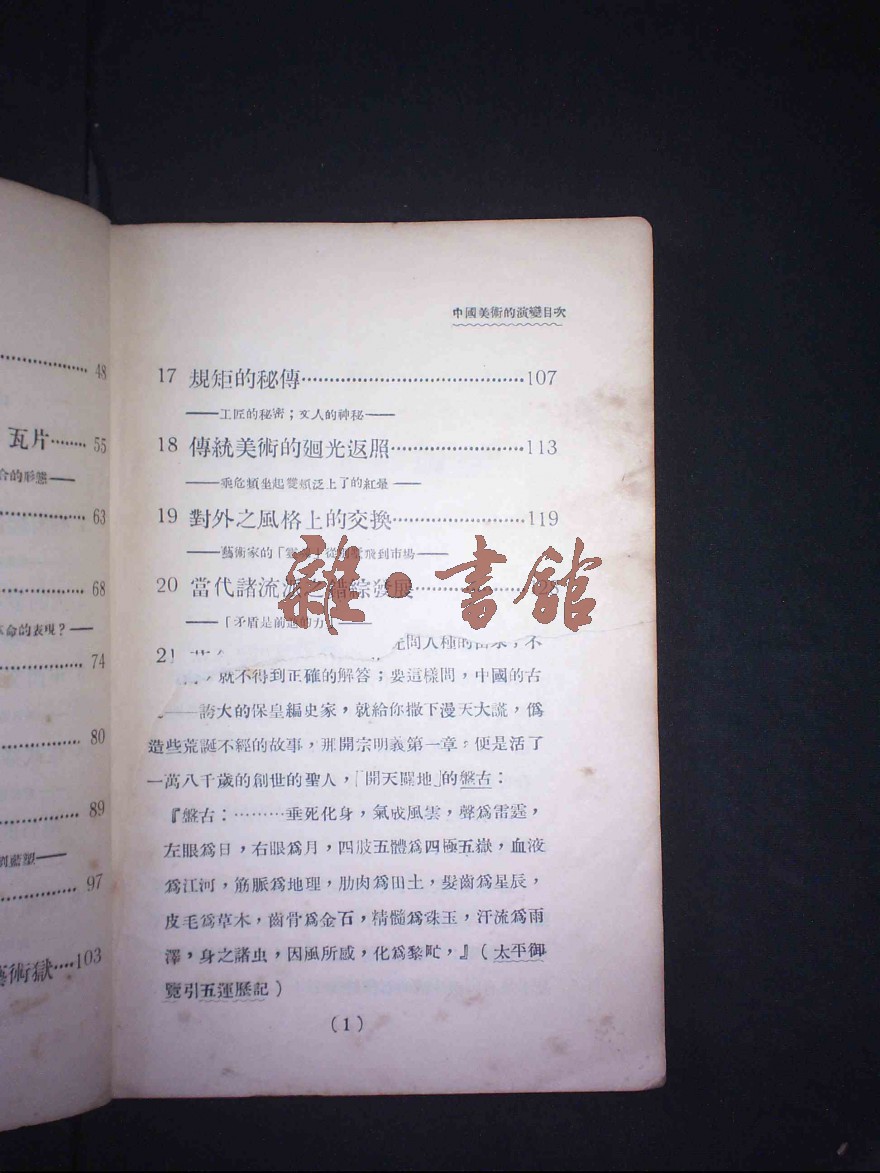 48
瓦片……55
合的形態——
63
68
革命的表現？——
74
80
89
97
藝術獄……103
中國美術的演變目次
17 規矩的秘傳……107
——工匠的秘密；文人的神秘——
18 傳統美術的廻光返照……113
——垂危頻坐起雙頰泛上了的紅暈——
19 對外之風格上的交換……119
——藝術家的「從飛到市場——
20 當代諸流派之錯綜發展……
——「矛盾是前進的力」——
21
問人種的由來，不
就不得到正確的解答；要這樣問，中國的古
——誇大的保皇編史家，就給你撒下漫天大謊，僞
造些荒誕不經的故事，那開宗明義第一章，便是活了
一萬八千歲的創世的聖人，「開天闢地」的盤古：
『盤古：………垂死化身，氣成風雲，聲爲雷霆，
左眼爲日，右眼爲月，四肢五體爲四極五嶽，血液
爲江河，筋脈爲地理，肋肉爲田土，髮齒爲星辰，
皮毛爲草木，齒骨爲金石，精髓爲珠玉，汗流爲雨
澤，身之諸虫，因風所感，化爲黎甿，』（太平御
覽引五運歷記）
（1）
雜·書舘